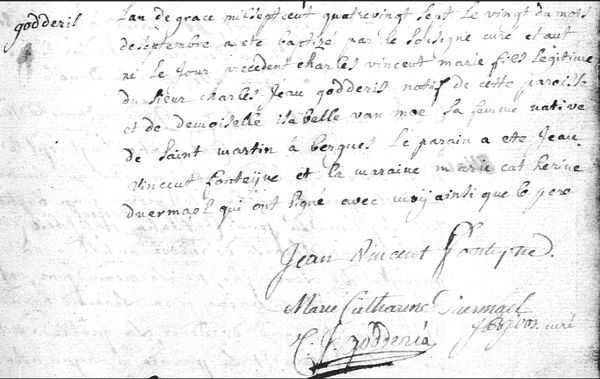 godderis
Lan de grace mil sept cent quatre vingt sept le vingt du mois
de septembre a ete baptizé par le sousigné curé et aut
né le jour precedent charles vincent marie fils legitime
du sieur charles Jean godderis natif de cette paroisse
et de demoiselle isabelle van moe sa femme native
de saint martin à bergues le parain a ete Jean
vincent fonteijne et la maraine marie catherine
duermael qui ont signé avec moy ainsi que le pere
Jean Vincent fonteyne.
Marie Catharine Duermael
curé
C. J. godderis